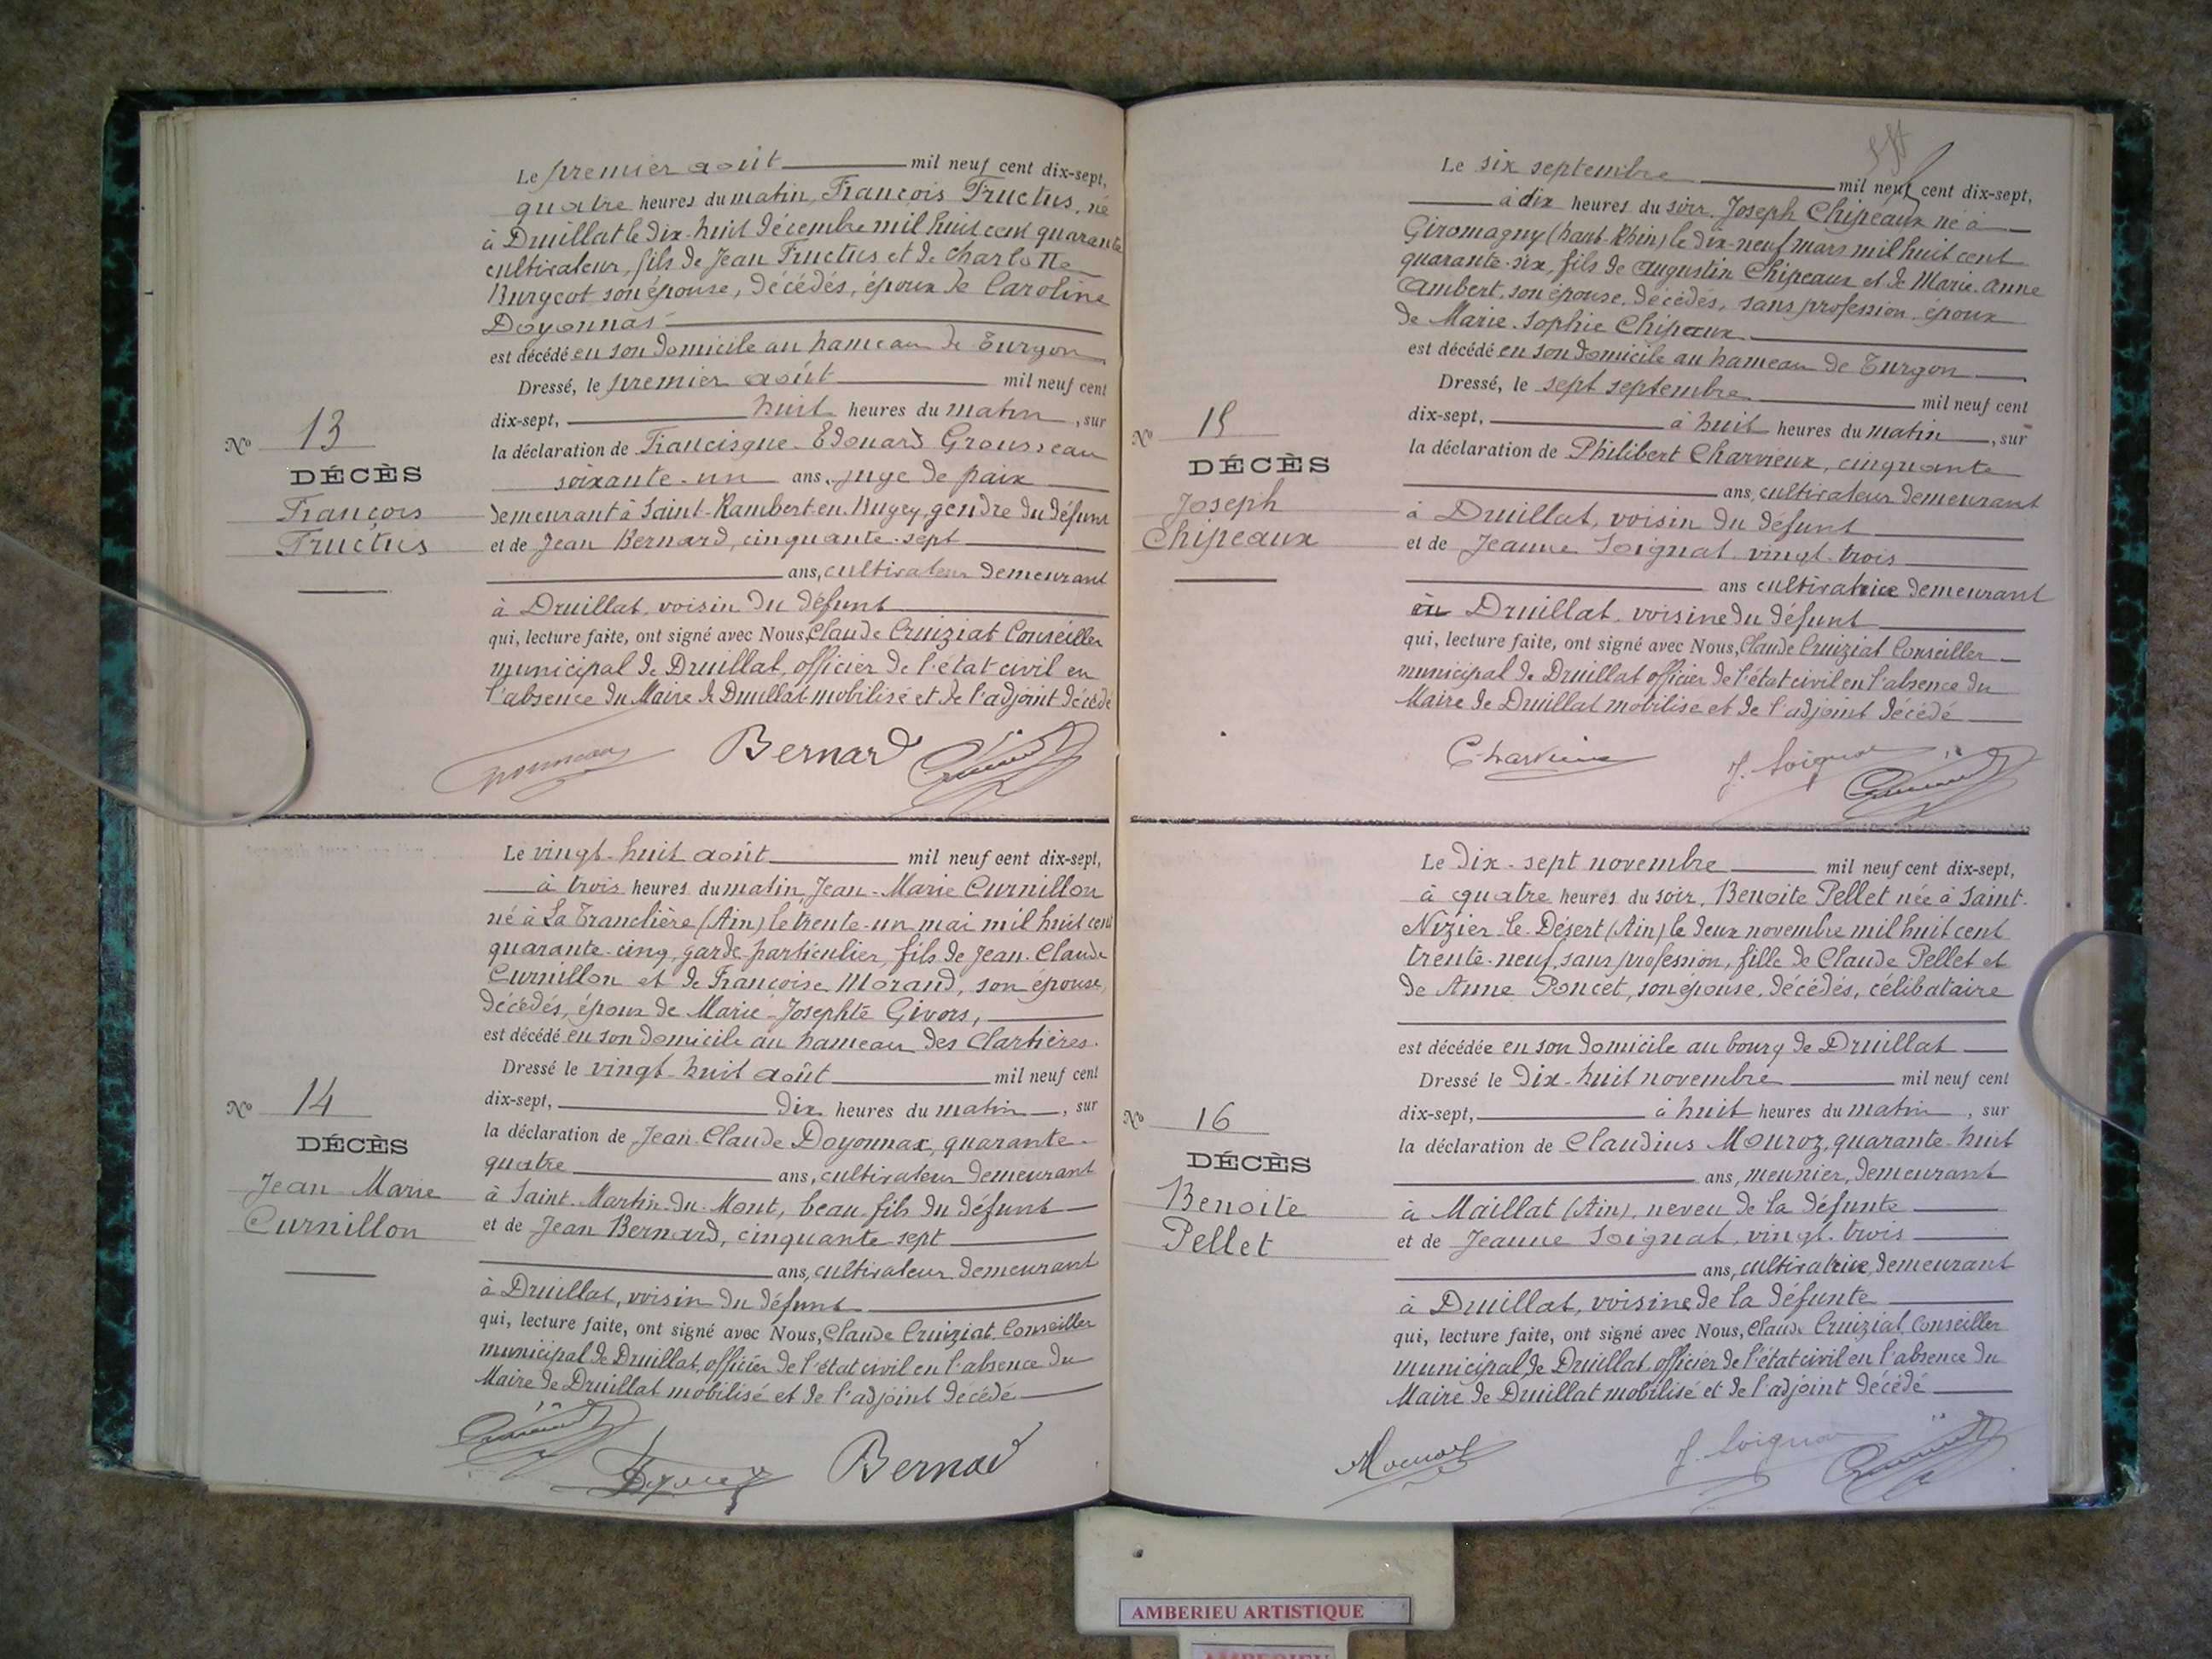 Le premier août mil neuf cent dix-sept,
quatre heures du matin, François Fructus, né
à Druillat le dix-huit décembre mil huit cent quarante
cultivateur, fils de Jean Fructus et de Charlotte
son épouse, décédés, époux de Caroline
Doyonnas
est décédé en son domicile au hameau de Turgon
Dressé, le premier août mil neuf cent
dix-sept, huit heures du matin, sur
la déclaration de Francisque-Edouard Grousseau
soixante-un ans, juge de paix
demeurant à Saint-Rambert-en-Bugey, gendre du défunt
et de Jean Bernard, cinquante-sept
ans, cultivateur demeurant
à Druillat, voisin du défunt
qui, lecture faite, ont signé avec Nous, Claude Cruiziat Conseiller
municipal de Druillat, officier de l'état civil en
l'absence du Maire de Druillat mobilisé et de l'adjoint décédé
No 13
DÉCÈS
François
Fructus
Bernard
Le vingt-huit août mil neuf cent dix-sept,
à trois heures du matin, Jean-Marie Curnillon
né à La Tranclière (Ain) le trente-un mai mil huit cent
quarante-cinq, garde-particulier, fils de Jean-Claude
Curnillon et de Françoise Morand, son épouse,
décédés, époux de Marie-Josephte Givors,
est décédé en son domicile au hameau des Clartières.
Dressé le vingt-huit août mil neuf cent
dix-sept, dix heures du matin, sur
la déclaration de Jean-Claude Doyonnax, quarante-
quatre ans, cultivateur demeurant
à Saint-Martin-du-Mont, beau-fils du défunt
et de Jean Bernard, cinquante-sept
ans, cultivateur demeurant
à Druillat, voisin du défunt
qui, lecture faite, ont signé avec Nous, Claude Cruiziat Conseiller
municipal de Druillat, officier de l'état civil en l'absence du
Maire de Druillat mobilisé et de l'adjoint décédé
No 14
DÉCÈS
Jean-Marie
Curnillon
Bernard
Le six septembre mil neuf cent dix-sept,
à dix heures du soir, Joseph Chipeaux né à
Giromagny (haut-Rhin) le dix-neuf mars mil huit cent
quarante-six, fils de Augustin Chipeaux et de Marie-Anne
Ambert, son épouse, décédés, sans profession, époux
de Marie-Sophie Chipeaux
est décédé en son domicile au hameau de Turgon
Dressé, le sept septembre mil neuf cent
dix-sept, à huit heures du matin, sur
la déclaration de Philibert Charvieux, cinquante
ans, cultivateur demeurant
à Druillat, voisin du défunt
et de Jeanne Soignat, vingt-trois
ans cultivatrice demeurant
à Druillat, voisine du défunt
qui, lecture faite, ont signé avec Nous, Claude Cruiziat Conseiller
municipal de Druillat officier de l'état civil en l'absence du
Maire de Druillat mobilisé et de l'adjoint décédé
No 15
DÉCÈS
Joseph
Chipeaux
J. Soignat
Le dix-sept novembre mil neuf cent dix-sept,
à quatre heures du soir, Benoite Pellet née à Saint-
Nizier-le-Désert (Ain) le deux novembre mil huit cent
trente-neuf, sans profession, fille de Claude Pellet et
de Anne Poncet, son épouse, décédés, célibataire
est décédée en son domicile au bourg de Druillat
Dressé le dix-huit novembre mil neuf cent
dix-sept, à huit heures du matin, sur
la déclaration de Claudius Mouroz, quarante-huit
ans, meunier, demeurant
à Maillat (Ain), neveu de la défunte
et de Jeanne Soignat, vingt-trois
ans, cultivatrice, demeurant
à Druillat, voisine de la défunte
qui, lecture faite, ont signé avec Nous, Claude Cruiziat Conseiller
municipal de Druillat officier de l'état civil en l'absence du
Maire de Druillat mobilisé et de l'adjoint décédé
No 16
DÉCÈS
Benoite
Pellet
J. Soignat
AMBERIEU ARTISTIQUE
AMBERIEU